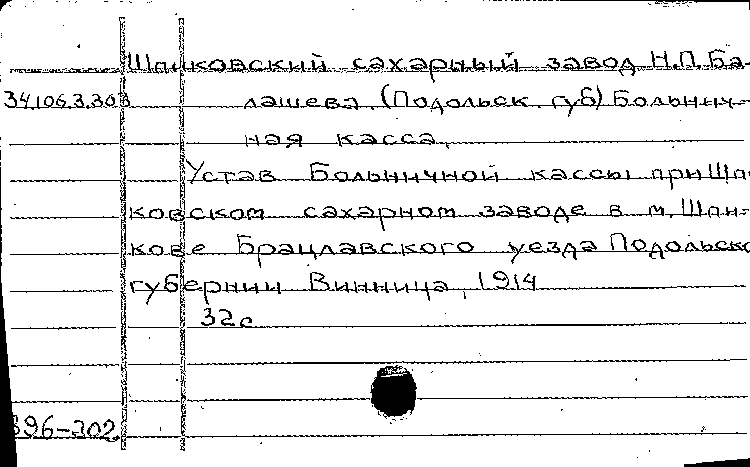 Шпиковский сахарный завод Н.П.Ба-
34.106.3.303 лашева (Подольск. губ) Больнич-
ная касса.
Устав Больничной кассы при Шпи-
ковском сахарном заводе в м. Шпи-
кове Брацлавского уезда Подольско
губернии Винница, 1914
32с
396-302